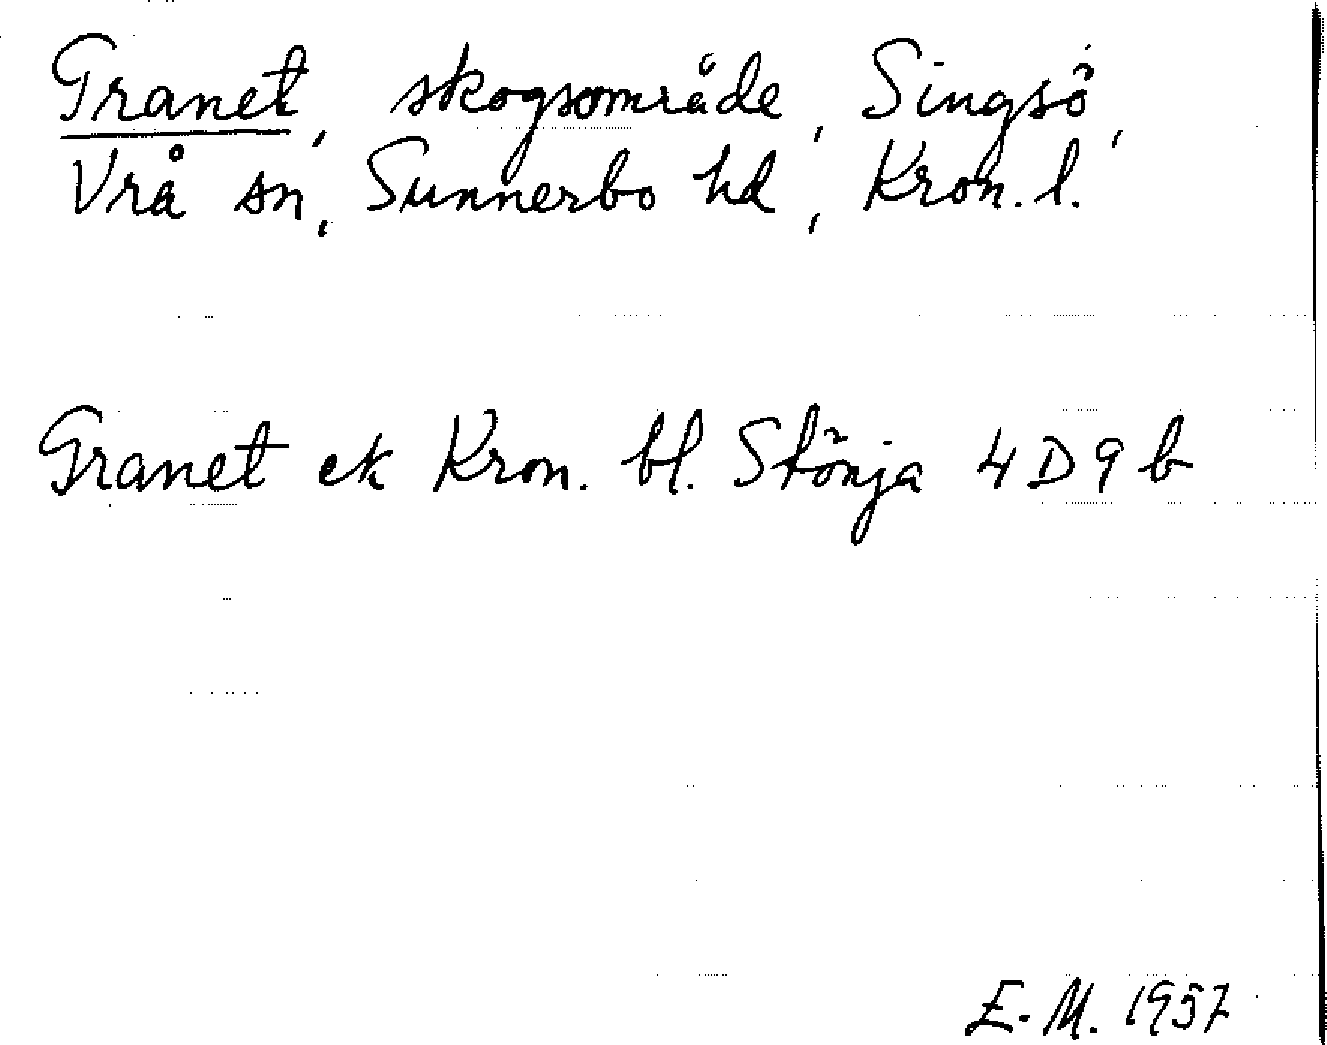 Granet, skogsområde, Singsö,
Vrå sn, Sunnerbo hd, Kron. l.
Granet ek Kron. bl. Stönja 4D9b
E. M. 1957